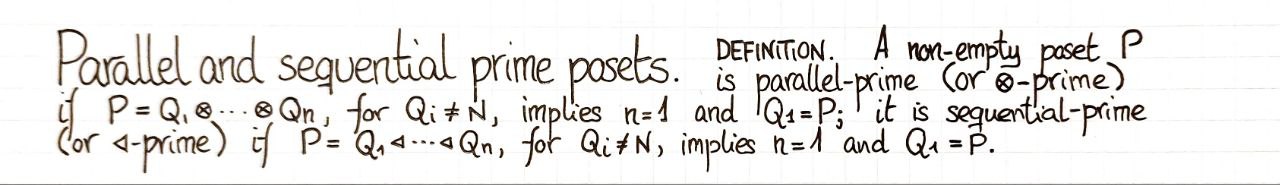 Parallel and sequential prime posets. DEFINITION. A non-empty poset P
is parallel-prime (or ⊗-prime)
if P = Q₁ ⊗ ··· ⊗ Qn, for Qi ≠ N, implies n=1 and Q₁=P; it is sequential-prime
(or ◁-prime) if P = Q₁ ◁ ··· ◁ Qn, for Qi ≠ N, implies n=1 and Q₁ = P.